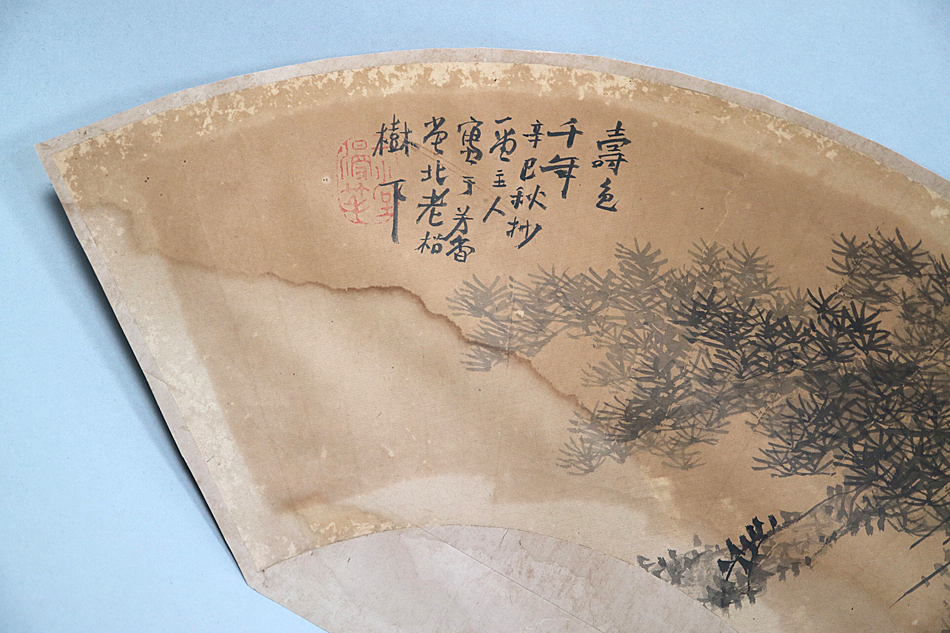 壽色
千年
辛巳秋抄
一堂主人
寫于芳香
堂北老楷
樹下